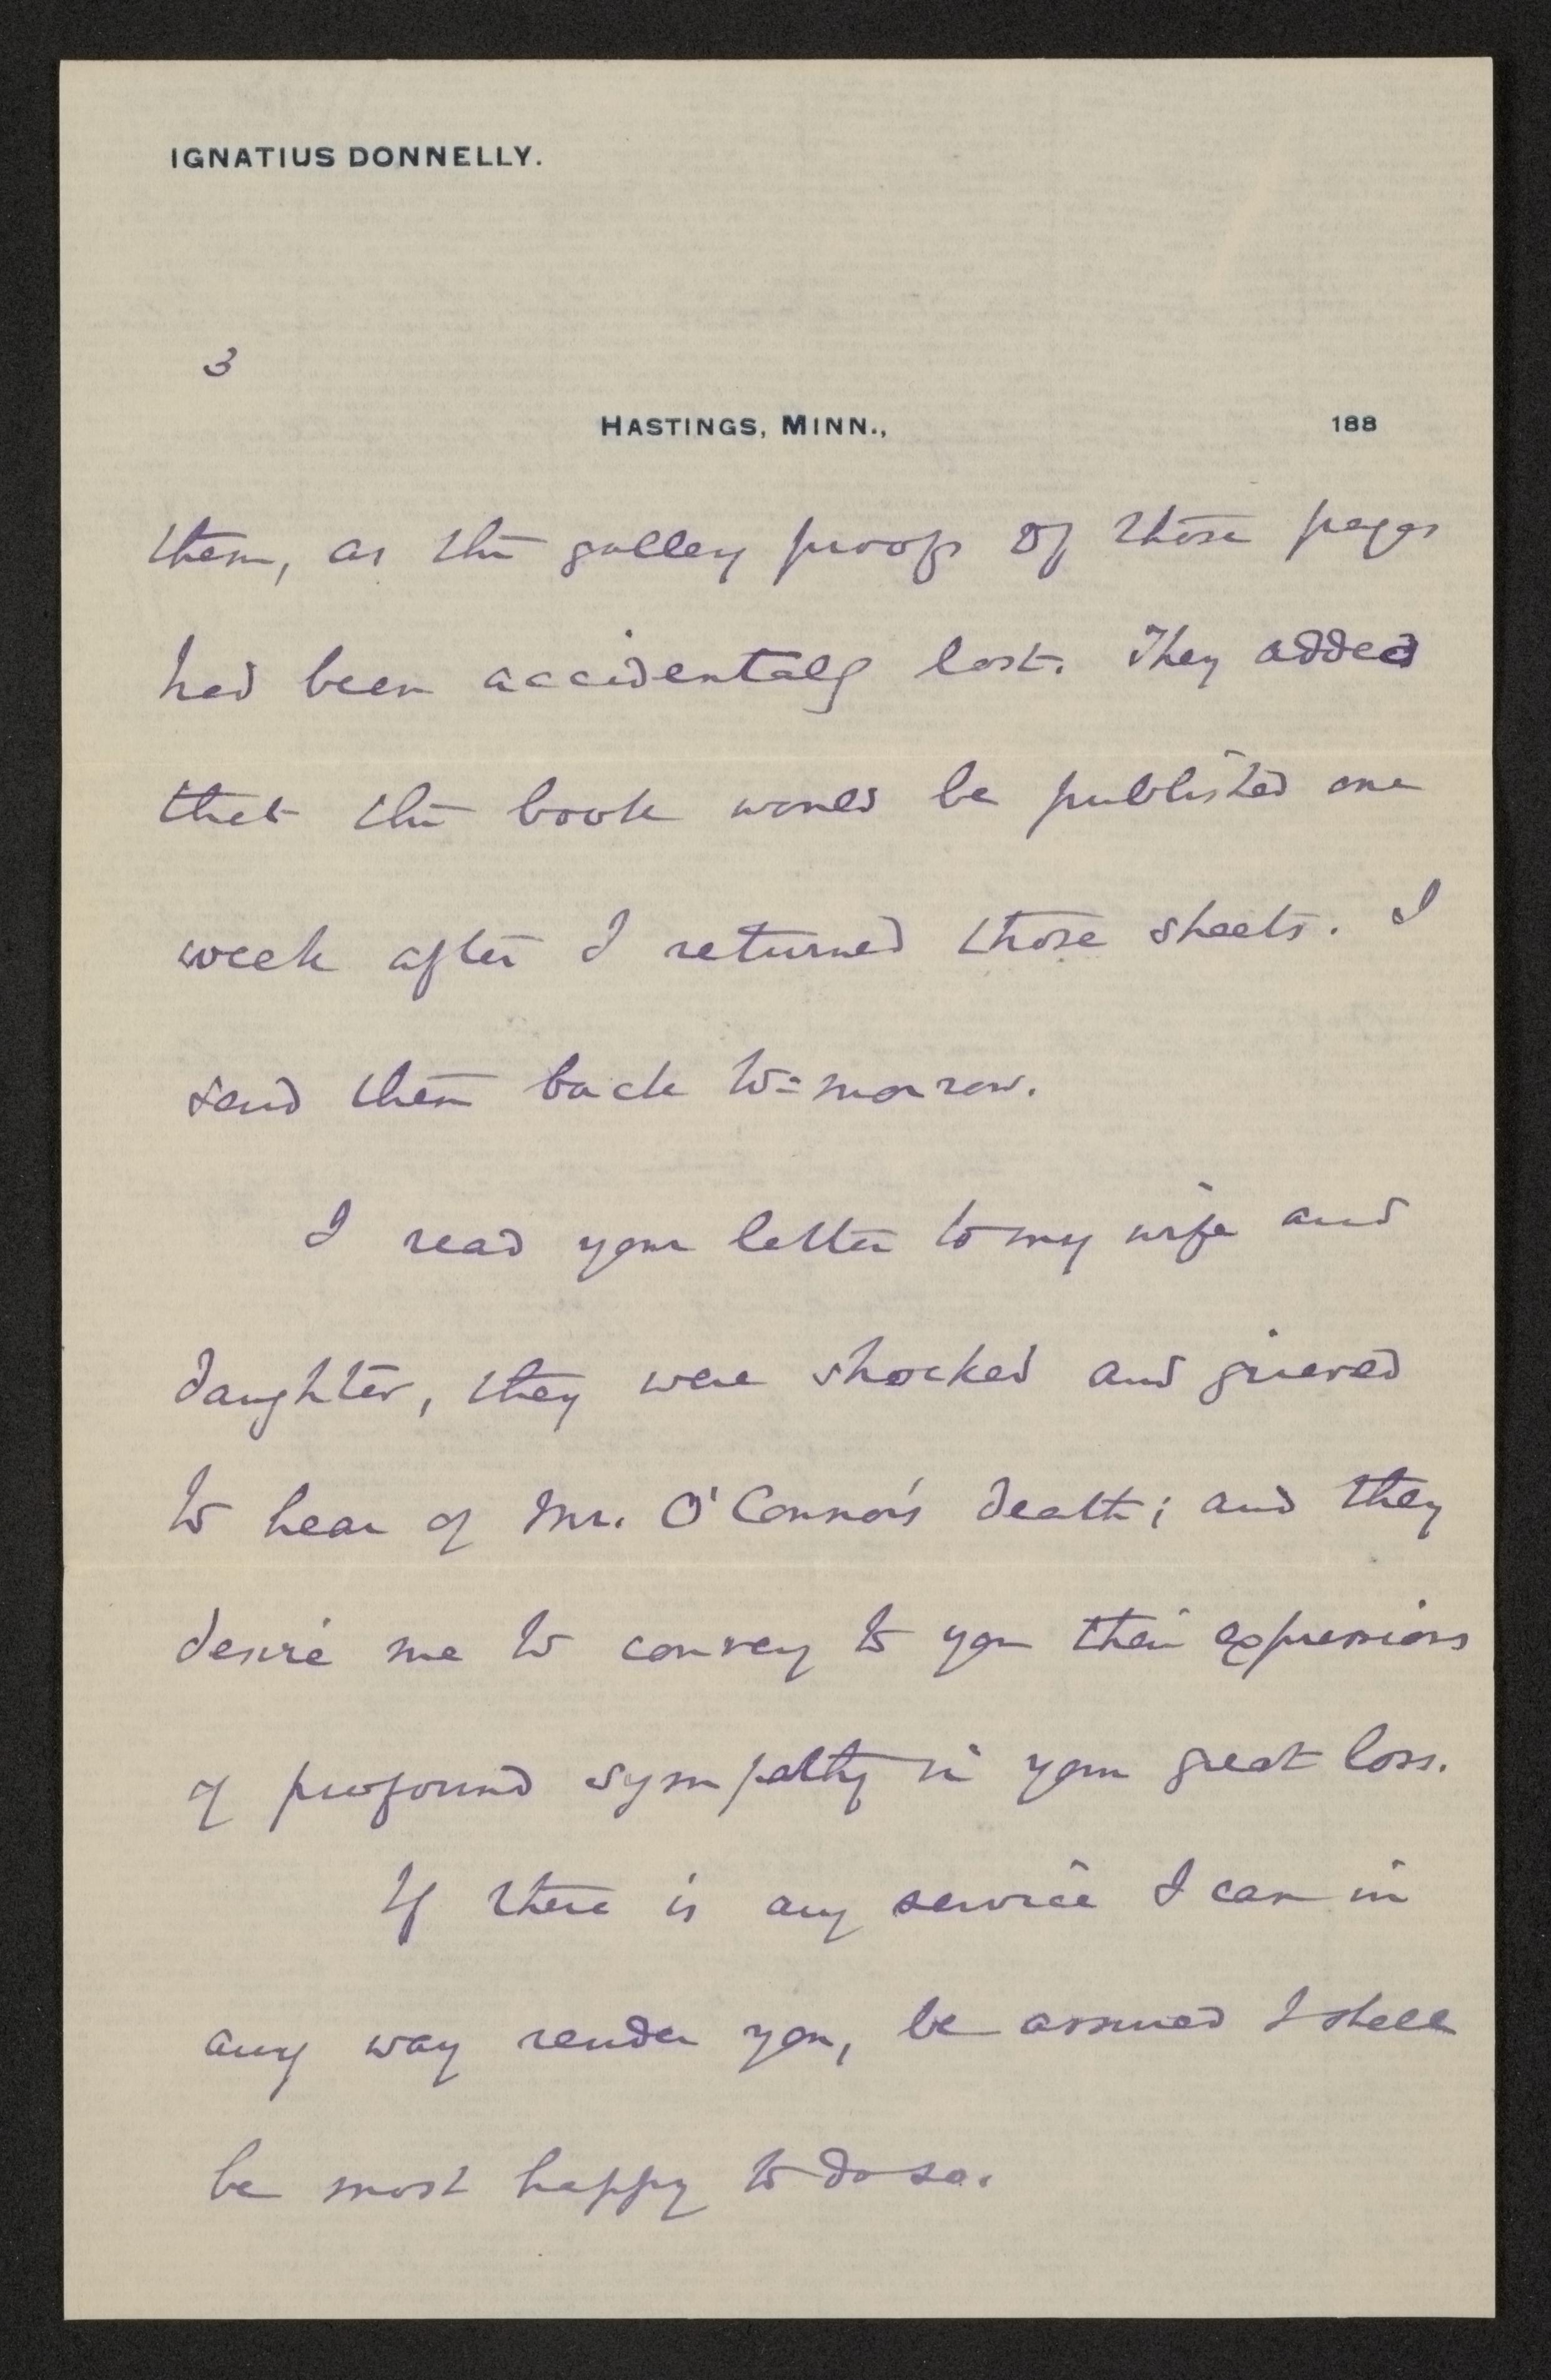 IGNATIUS DONNELLY.
3
HASTINGS, MINN., 188
them, as the galley proofs of those pages
had been accidentaly lost. They added
that the book would be published one
week after I returned those sheets. I
send them back to=morrow.
I read your letter to my wife and
daughter, they were shocked and grieved
to hear of Mr. O'Connor's death; and they
desire me to convey to you their expressions
of profound sympathy in your great loss.
If there is any service I can in
any way render you, be assured I shall
be most happy to do so.